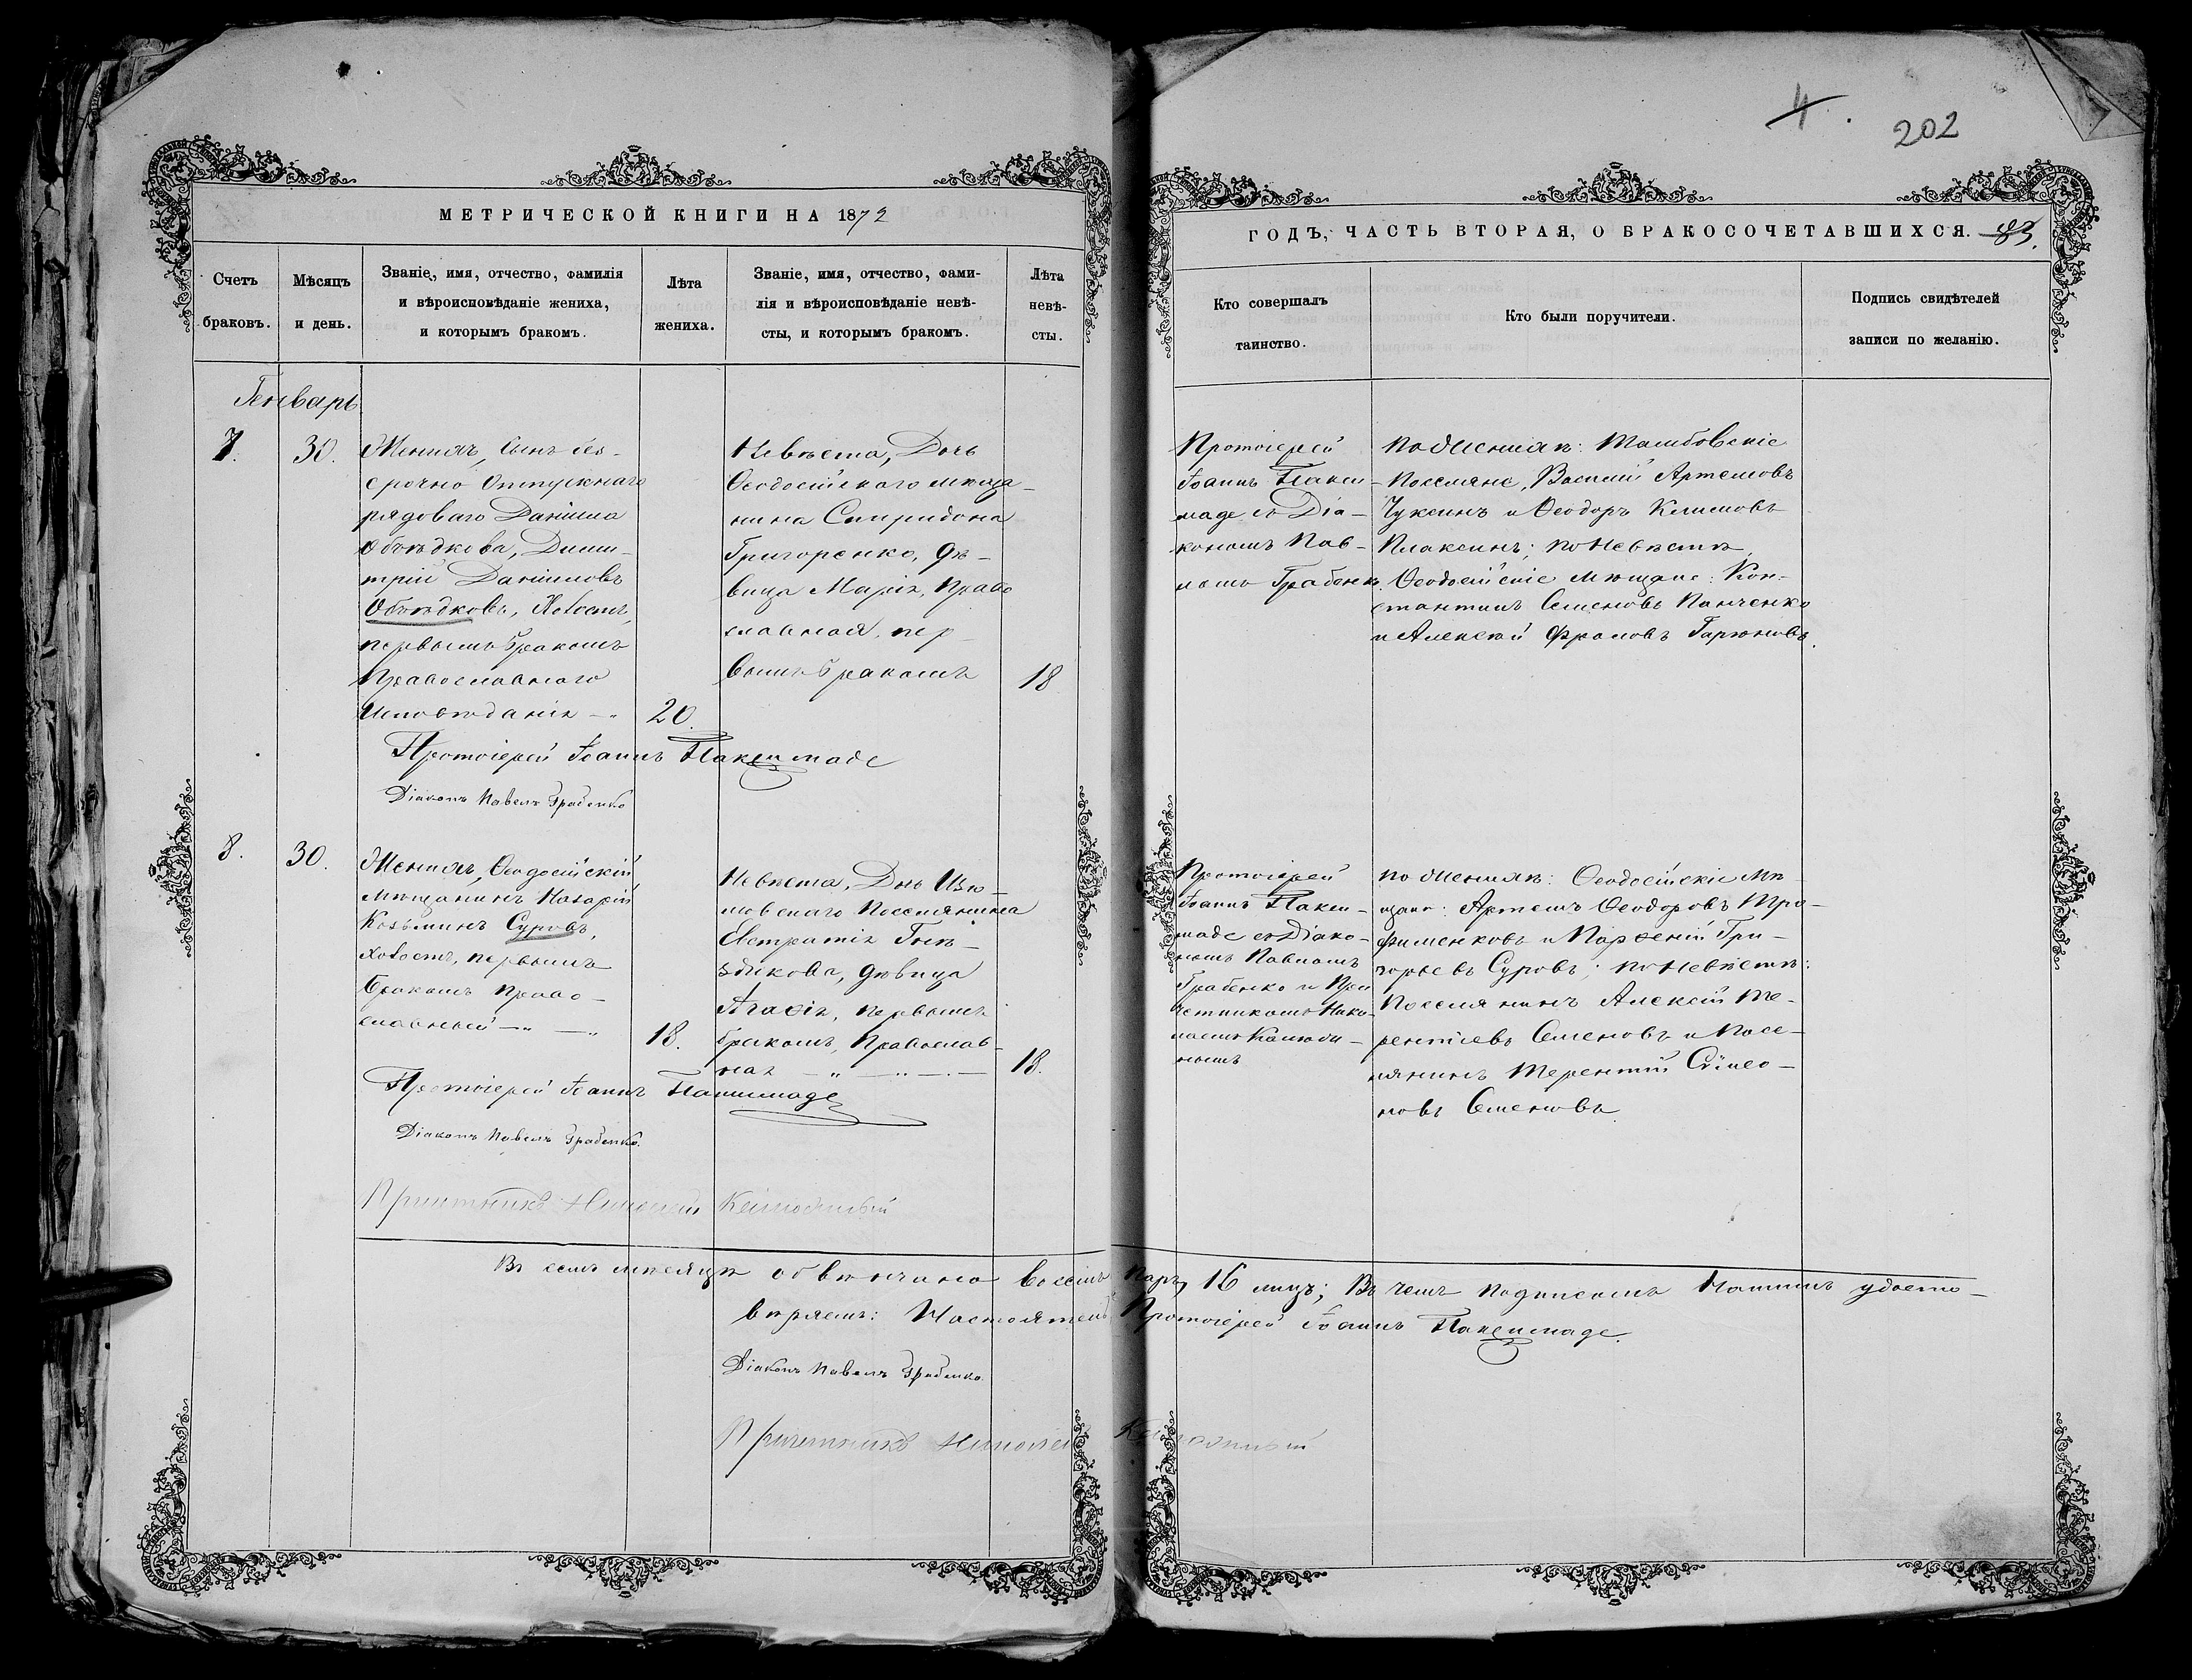 4.
202
МЕТРИЧЕСКОЙ КНИГИ НА 1872
ГОДЪ, ЧАСТЬ ВТОРАЯ, О БРАКОСОЧЕТАВШИХСЯ. 83.
Счетъ
браковъ.
Мѣсяцъ
и день.
Званіе, имя, отчество, фамилія
и вѣроисповѣданіе жениха,
и которымъ бракомъ.
Лѣта
жениха.
Званіе, имя, отчество, фами-
лія и вѣроисповѣданіе невѣ-
сты, и которымъ бракомъ.
Лѣта
невѣ-
сты.
Кто совершалъ
таинство.
Кто были поручители.
Подпись свидѣтелей
записи по желанію.
Генварь
7.
30.
Женихъ, Сынъ без-
срочно Отпускнаго
рядоваго Даніила
Объѣдкова, Дими-
трій Даніиловъ
Объѣдковъ, Холостъ,
первымъ бракомъ
Православнаго
Исповѣданія — "
20.
Невѣста, Дочь
Ѳеодосійскаго мѣща-
нина Спиридона
Григоренко, дѣ-
вица Марія, Право
славная, пер-
вымъ бракомъ
18
Протоіерей
Іоаннъ Пакси-
маде съ Діа-
кономъ Пав-
ломъ Грабенко
По Женихѣ: Тамбовскіе
Поселяне, Василій Артемовъ
Чуксинъ и Ѳеодоръ Климовъ
Плаксинъ; по Невѣстѣ
Ѳеодосійскіе мѣщане: Кон-
стантинъ Семеновъ Панченко
и Алексѣй Фроловъ Гарюновъ.
Протоіерей Іоаннъ Паксимаде
Діаконъ Павелъ Грабенко
8.
30.
Женихъ, Ѳеодосійскій
мѣщанинъ Назарій
Козьминъ Суровъ,
холостъ, первымъ
бракомъ Право-
славный — " — "
18.
Невѣста, Дочь Изю-
мовскаго Поселянина
Евстратія Гнѣ-
здикова, дѣвица
Агаѳія, первымъ
бракомъ, Православ-
ная — " — " — " —
18.
Протоіерей
Іоаннъ Пакси-
маде съ Діако-
номъ Павломъ
Грабенко и При
четникомъ Нико-
лаемъ
По Женихѣ: Ѳеодосійскіе Мѣ-
щане: Артемъ Ѳеодоровъ Тро-
фименковъ и Парѳеній Гри-
горьевъ Суровъ; по Невѣстѣ:
Поселянинъ Алексій Те-
рентіевъ Семеновъ и Посе-
лянинъ Терентій Сімео-
новъ Семеновъ.
Протоіерей Іоаннъ Паксимаде
Діаконъ Павелъ Грабенко.
Причетникъ Николай
Въ семъ мѣсяцѣ обвѣнчано восемь паръ, 16 лицъ; Въ чемъ подписомъ Нашимъ удосто-
вѣряемъ: Настоятель Протоіерей Іоаннъ Паксимаде.
Діаконъ Павелъ Грабенко.
Причетникъ Николай